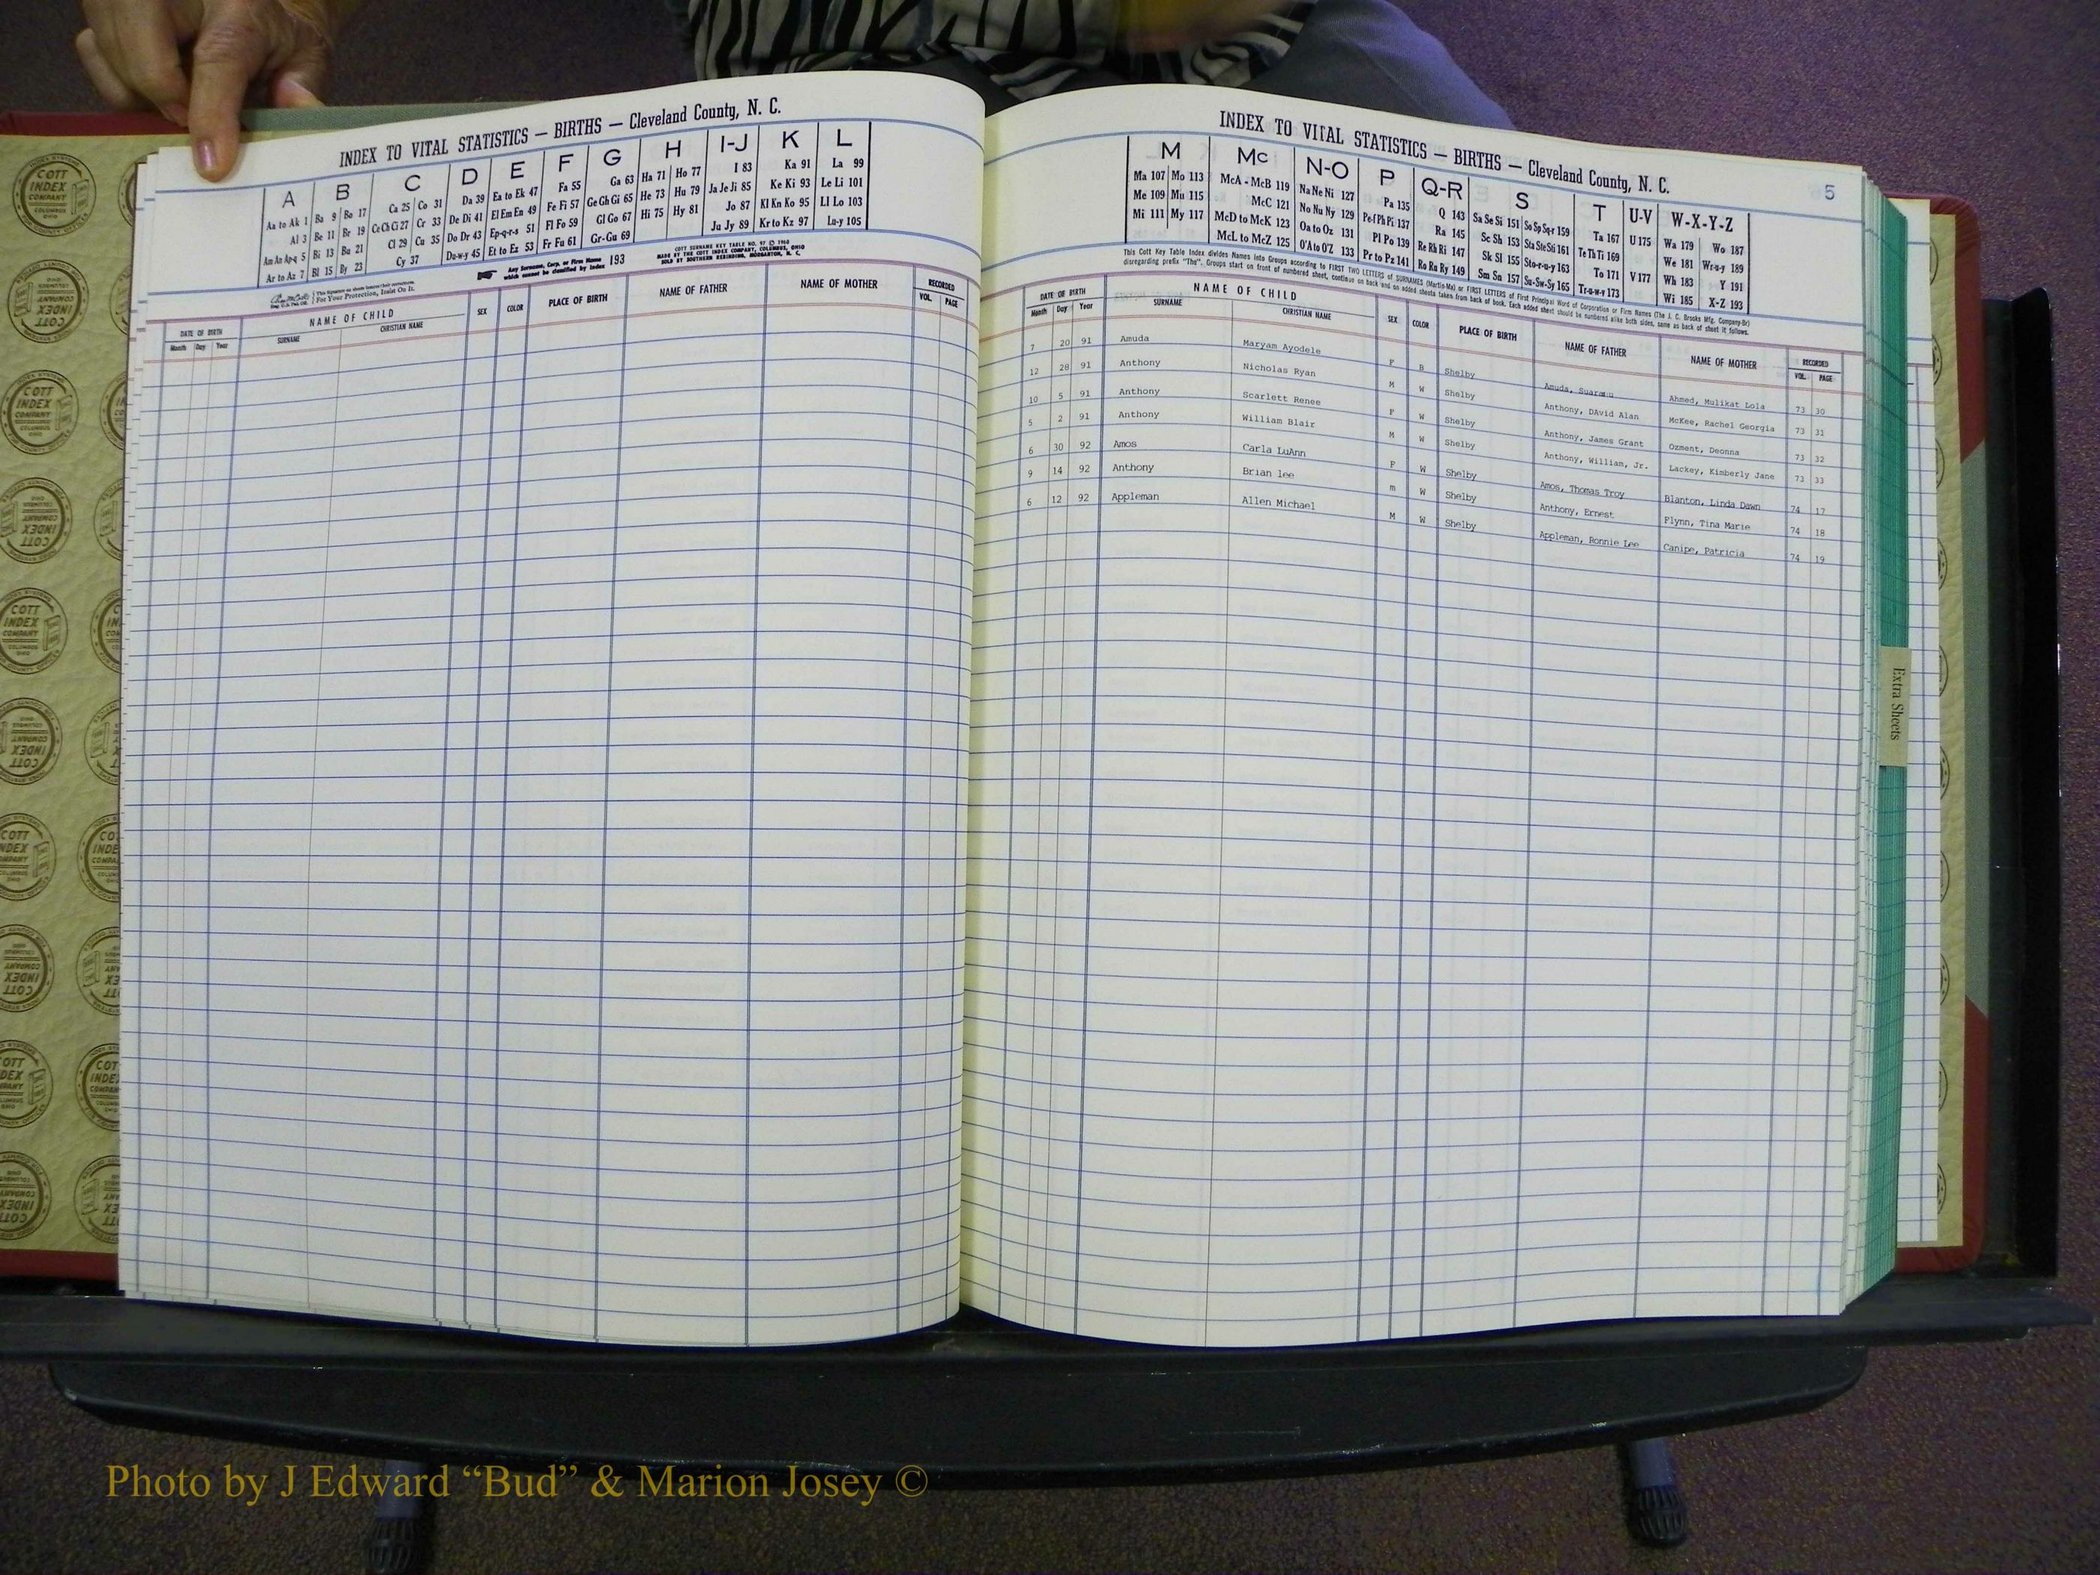 INDEX TO VITAL STATISTICS — BIRTHS — Cleveland County, N. C.
A B C D E F G H I-J K L
Aa to Ak 1 Ba 9 Bo 17 Ca 25 Co 31 Da 39 Ea to Ek 47 Fa 55 Ga 63 Ha 71 Ho 77 I 83 Ka 91 La 99
Al 3 Be 11 Br 19 Ce Ch Ci 27 Cr 33 De Di 41 El Em En 49 Fe Fi 57 Ge Gh Gi 65 He 73 Hu 79 Ja Je Ji 85 Ke Ki 93 Le Li 101
Am An Ap-q 5 Bi 13 Bu 21 Cl 29 Cu 35 Do Dr 43 Ep-q-r-s 51 Fl Fo 59 Gl Go 67 Hi 75 Hy 81 Jo 87 Kl Kn Ko 95 Ll Lo 103
Ar to Az 7 Bl 15 By 23 Cy 37 Du-w-y 45 Et to Ez 53 Fr Fu 61 Gr-Gu 69 Ju Jy 89 Kr to Kz 97 Lu-y 105
Any Surname, Corp. or Firm Name which cannot be classified by index 193
COTT SURNAME KEY TABLE NO. 97 © 1960
MADE BY THE COTT INDEX COMPANY, COLUMBUS, OHIO
SOLD BY SOUTHERN REBINDING, MORGANTON, N. C.
For Your Protection, Insist On It.
DATE OF BIRTH NAME OF CHILD SEX COLOR PLACE OF BIRTH NAME OF FATHER NAME OF MOTHER RECORDED
Month Day Year SURNAME CHRISTIAN NAME VOL. PAGE
INDEX TO VITAL STATISTICS — BIRTHS — Cleveland County, N. C.
5
M Mc N-O P Q-R S T U-V W-X-Y-Z
Ma 107 Mo 113 McA - McB 119 Na Ne Ni 127 Pa 135 Q 143 Sa Se Si 151 So Sp Sq-r 159 Ta 167 U 175 Wa 179 Wo 187
Me 109 Mu 115 McC 121 No Nu Ny 129 Pe-f Ph Pi 137 Ra 145 Sc Sh 153 Sta Ste Sti 161 Te Th Ti 169 We 181 Wr-u-y 189
Mi 111 My 117 McD to McK 123 Oa to Oz 131 Pl Po 139 Re Rh Ri 147 Sk Sl 155 Sto-r-u-y 163 To 171 V 177 Wh 183 Y 191
McL to McZ 125 O'A to O'Z 133 Pr to Pz 141 Ro Ru Ry 149 Sm Sn 157 Su-Sw-Sy 165 Tr-u-w-y 173 Wi 185 X-Z 193
This Cott Key Table Index divides Names into Groups according to FIRST TWO LETTERS of SURNAMES (Martin-Ma) or FIRST LETTERS of First Principal Word of Corporation or Firm Names (The J. C. Brooks Mfg. Company-Br)
disregarding prefix "The". Groups start on front of numbered sheet, continue on back and on added sheets taken from back of book. Each added sheet should be numbered alike both sides, same as back of sheet it follows.
DATE OF BIRTH NAME OF CHILD SEX COLOR PLACE OF BIRTH NAME OF FATHER NAME OF MOTHER RECORDED
Month Day Year SURNAME CHRISTIAN NAME VOL. PAGE
7 20 91 Amuda Maryam Ayodele F B Shelby Amuda, Ahmed, Mulikat Lola 73 30
12 28 91 Anthony Nicholas Ryan M W Shelby Anthony, DAvid Alan McKee, Rachel Georgia 73 31
10 5 91 Anthony Scarlett Renee F W Shelby Anthony, James Grant Ozment, Deonna 73 32
5 2 91 Anthony William Blair M W Shelby Anthony, William, Jr. Lackey, Kimberly Jane 73 33
6 30 92 Amos Carla LuAnn F W Shelby Amos, Thomas Troy Blanton, Linda Dawn 74 17
9 14 92 Anthony Brian lee m W Shelby Anthony, Ernest Flynn, Tina Marie 74 18
6 12 92 Appleman Allen Michael M W Shelby Appleman, Ronnie Lee Canipe, Patricia 74 19
Extra Sheets
COTT INDEX COMPANY COLUMBUS OHIO
Photo by J Edward “Bud” & Marion Josey ©